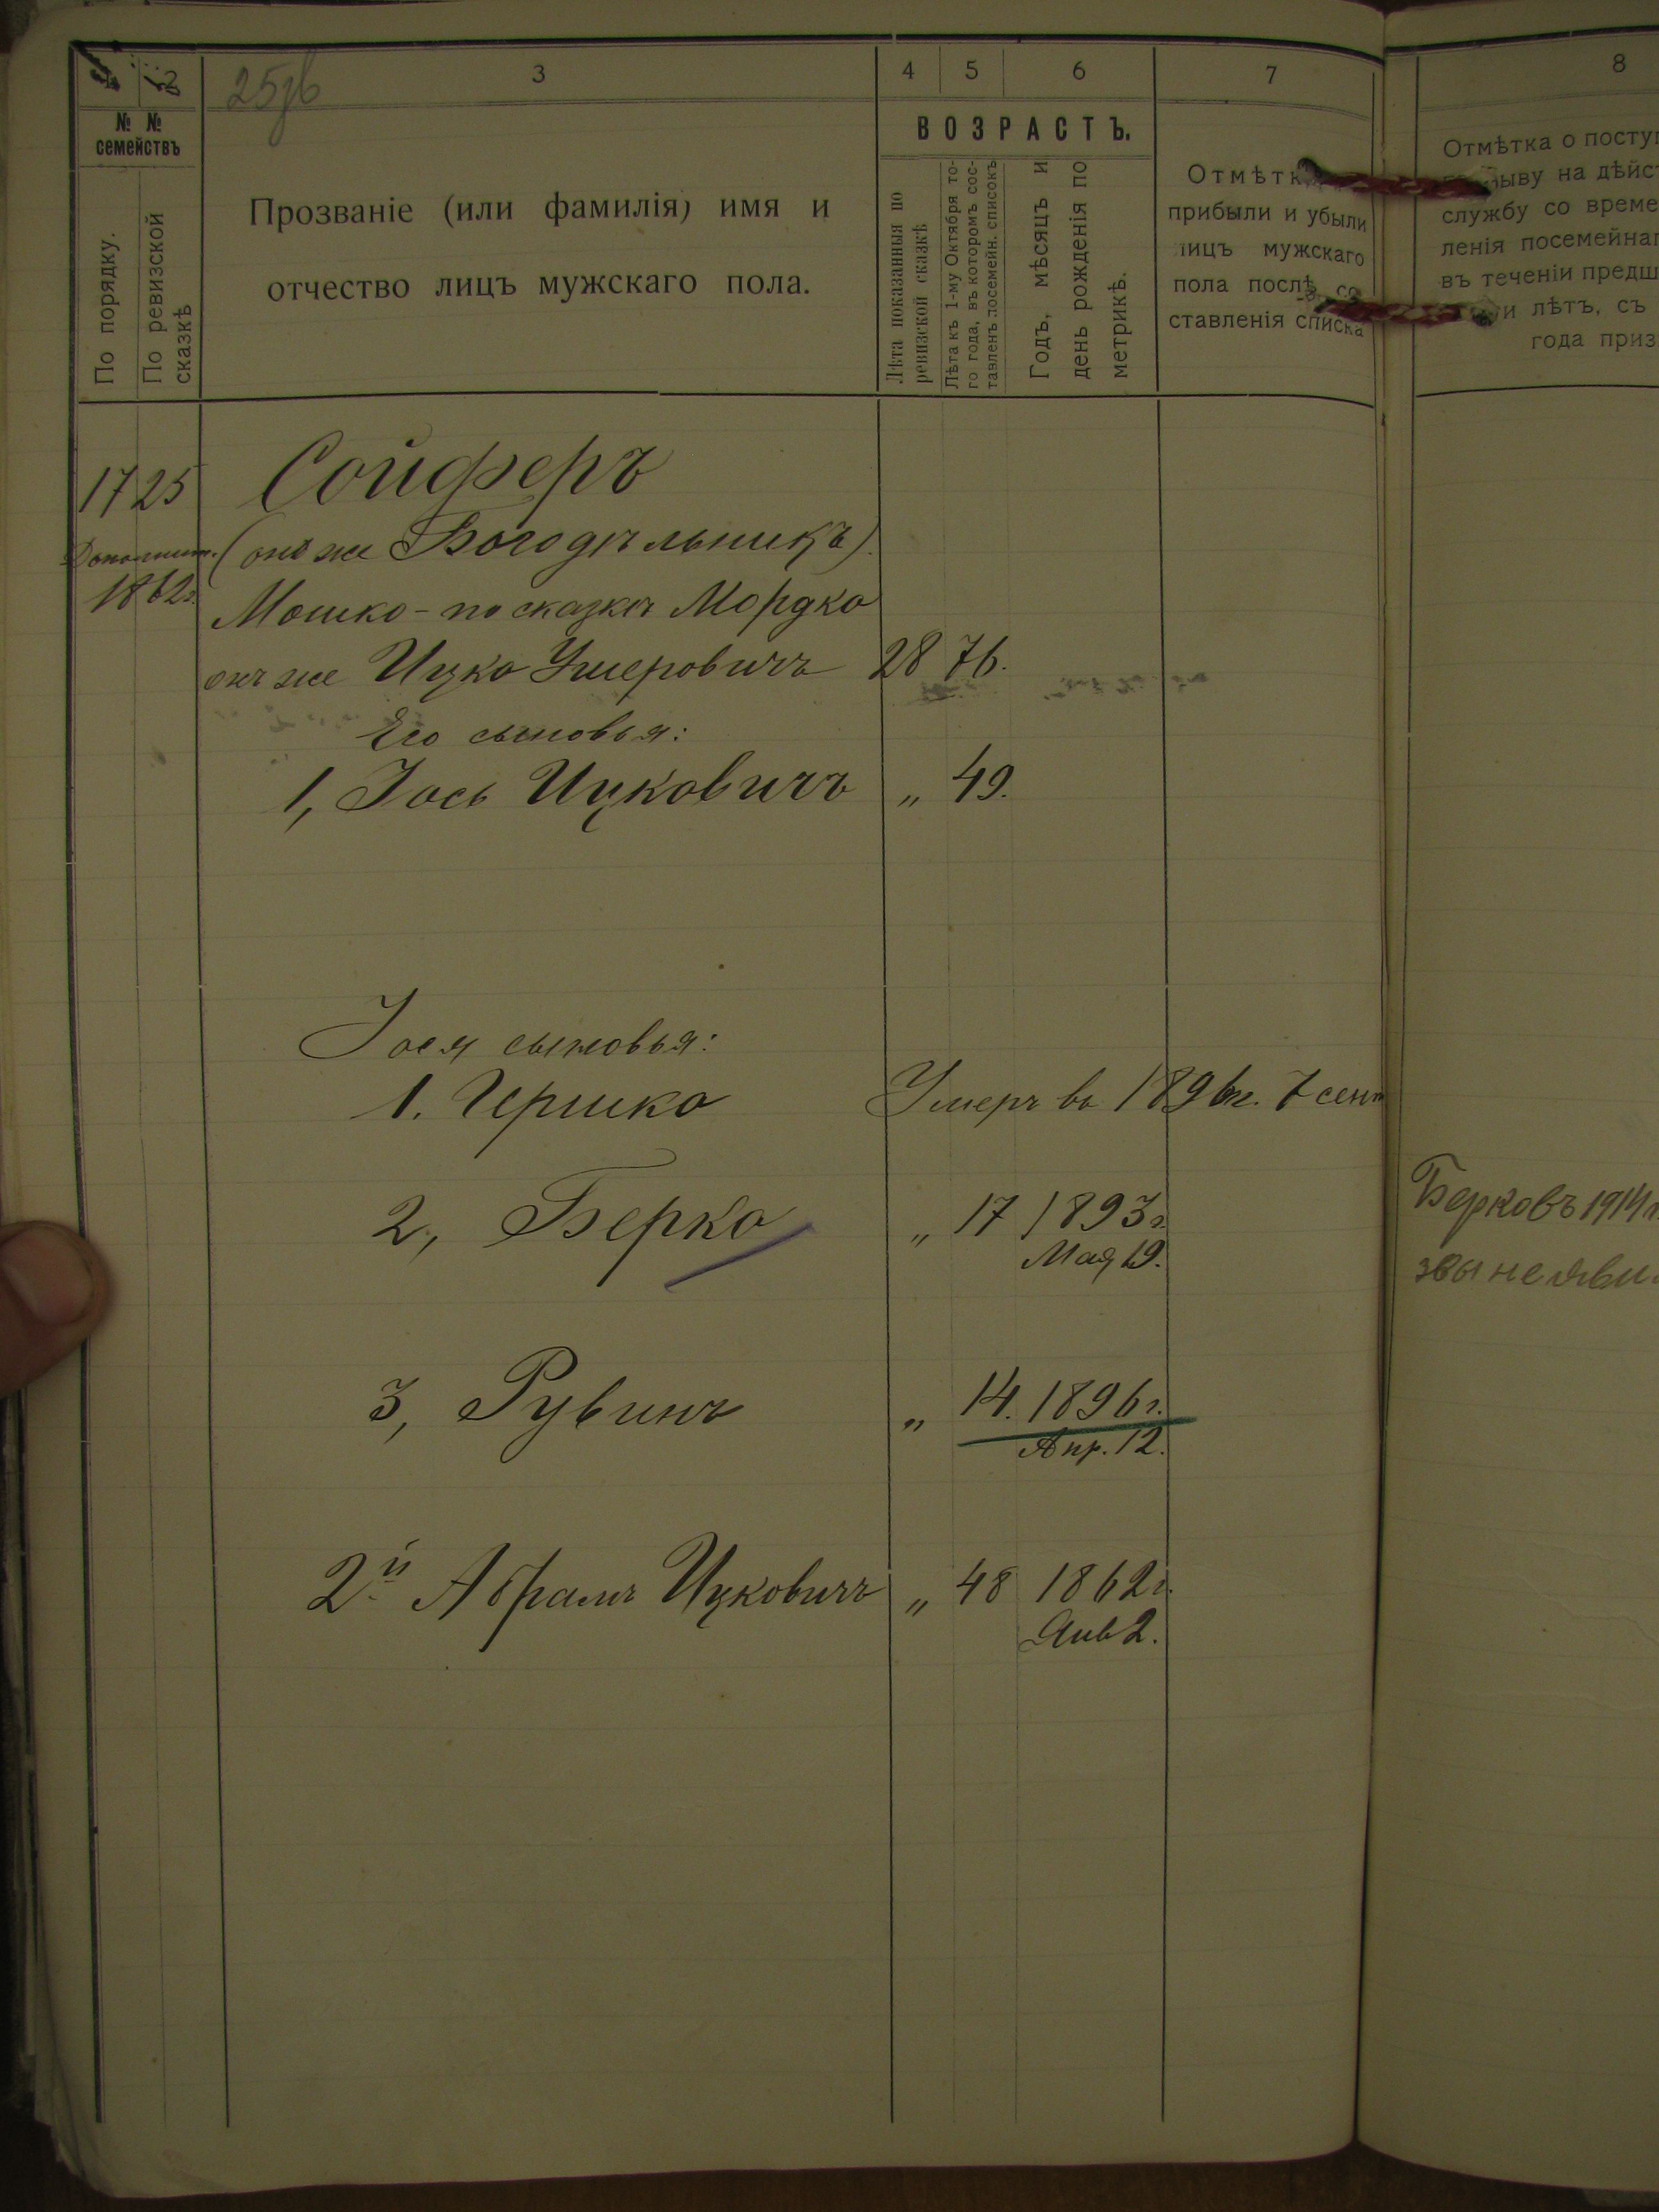 2 3 4 5 6 7 8
№ № семействъ
По порядку.
По ревизской сказкѣ
Прозваніе (или фамилія) имя и
отчество лицъ мужскаго пола.
ВОЗРАСТЪ.
Лѣта показанныя по ревизской сказкѣ
Лѣта къ 1-му Октября то-
го года, въ которомъ сос-
тавленъ посемейн. списокъ
Годъ, мѣсяцъ и
день рожденія по
метрикѣ.
Отмѣтк
прибыли и убыли
лицъ мужскаго
пола послѣ со
ставленія списка
Отмѣтка о посту
ыву на дѣйс
службу со време
ленія посемейнаг
въ теченіи предш
и лѣтъ, съ
года приз
1725 Сойферъ
Дополнит. (онъ же Богодѣльникъ)
1862г. Мошко - по сказкѣ Мордко
онъ же Ицко Умеровичъ 28 76.
Его сыновья:
1, Іось Ицковичъ „ 49.
Іося сыновья:
1. Гершко Умеръ въ 1896г. 7 сент
2, Берко „ 17 1893г.
Мая 19.
Берковъ 1914
звы не яви
3, Рувинъ „ 14. 1896г.
Апр. 12.
2й Абрамъ Ицковичъ „ 48 1862г.
Янв 2.